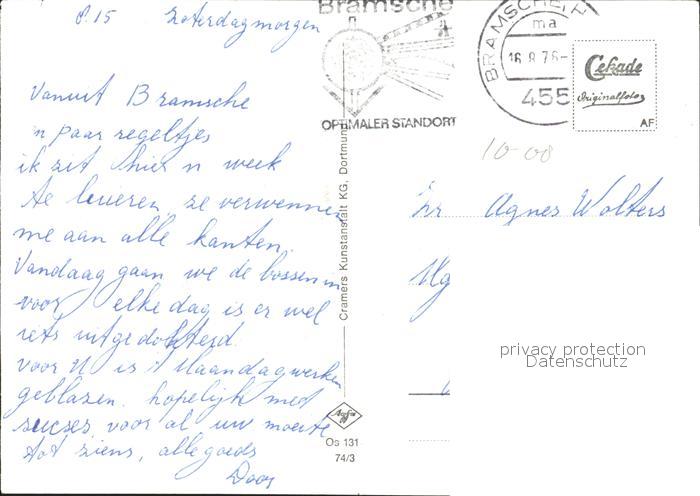 8.15 Zaterdagmorgen
Vanuit Bramsche
'n paar regeltjes
ik zit hier n week
te luieren, ze verwennen
me aan alle kanten.
Vandaag gaan we de bossen in
voor elke dag is er wel
iets uitgedokterd.
voor U is 't Maandag werken
geblazen. hopelijk met
succes, voor al uw moeite
tot ziens, alle goeds
Door
Bramsche
OPTIMALER STANDORT
BRAMSCHE
ma
16.8.76-
455
Cekade
Originalfoto
AF
10-08
Zr Agnes Wolters
Cramers Kunstanstalt KG, Dortmund
Agfa
Os 131
74/3
privacy protection
Datenschutz